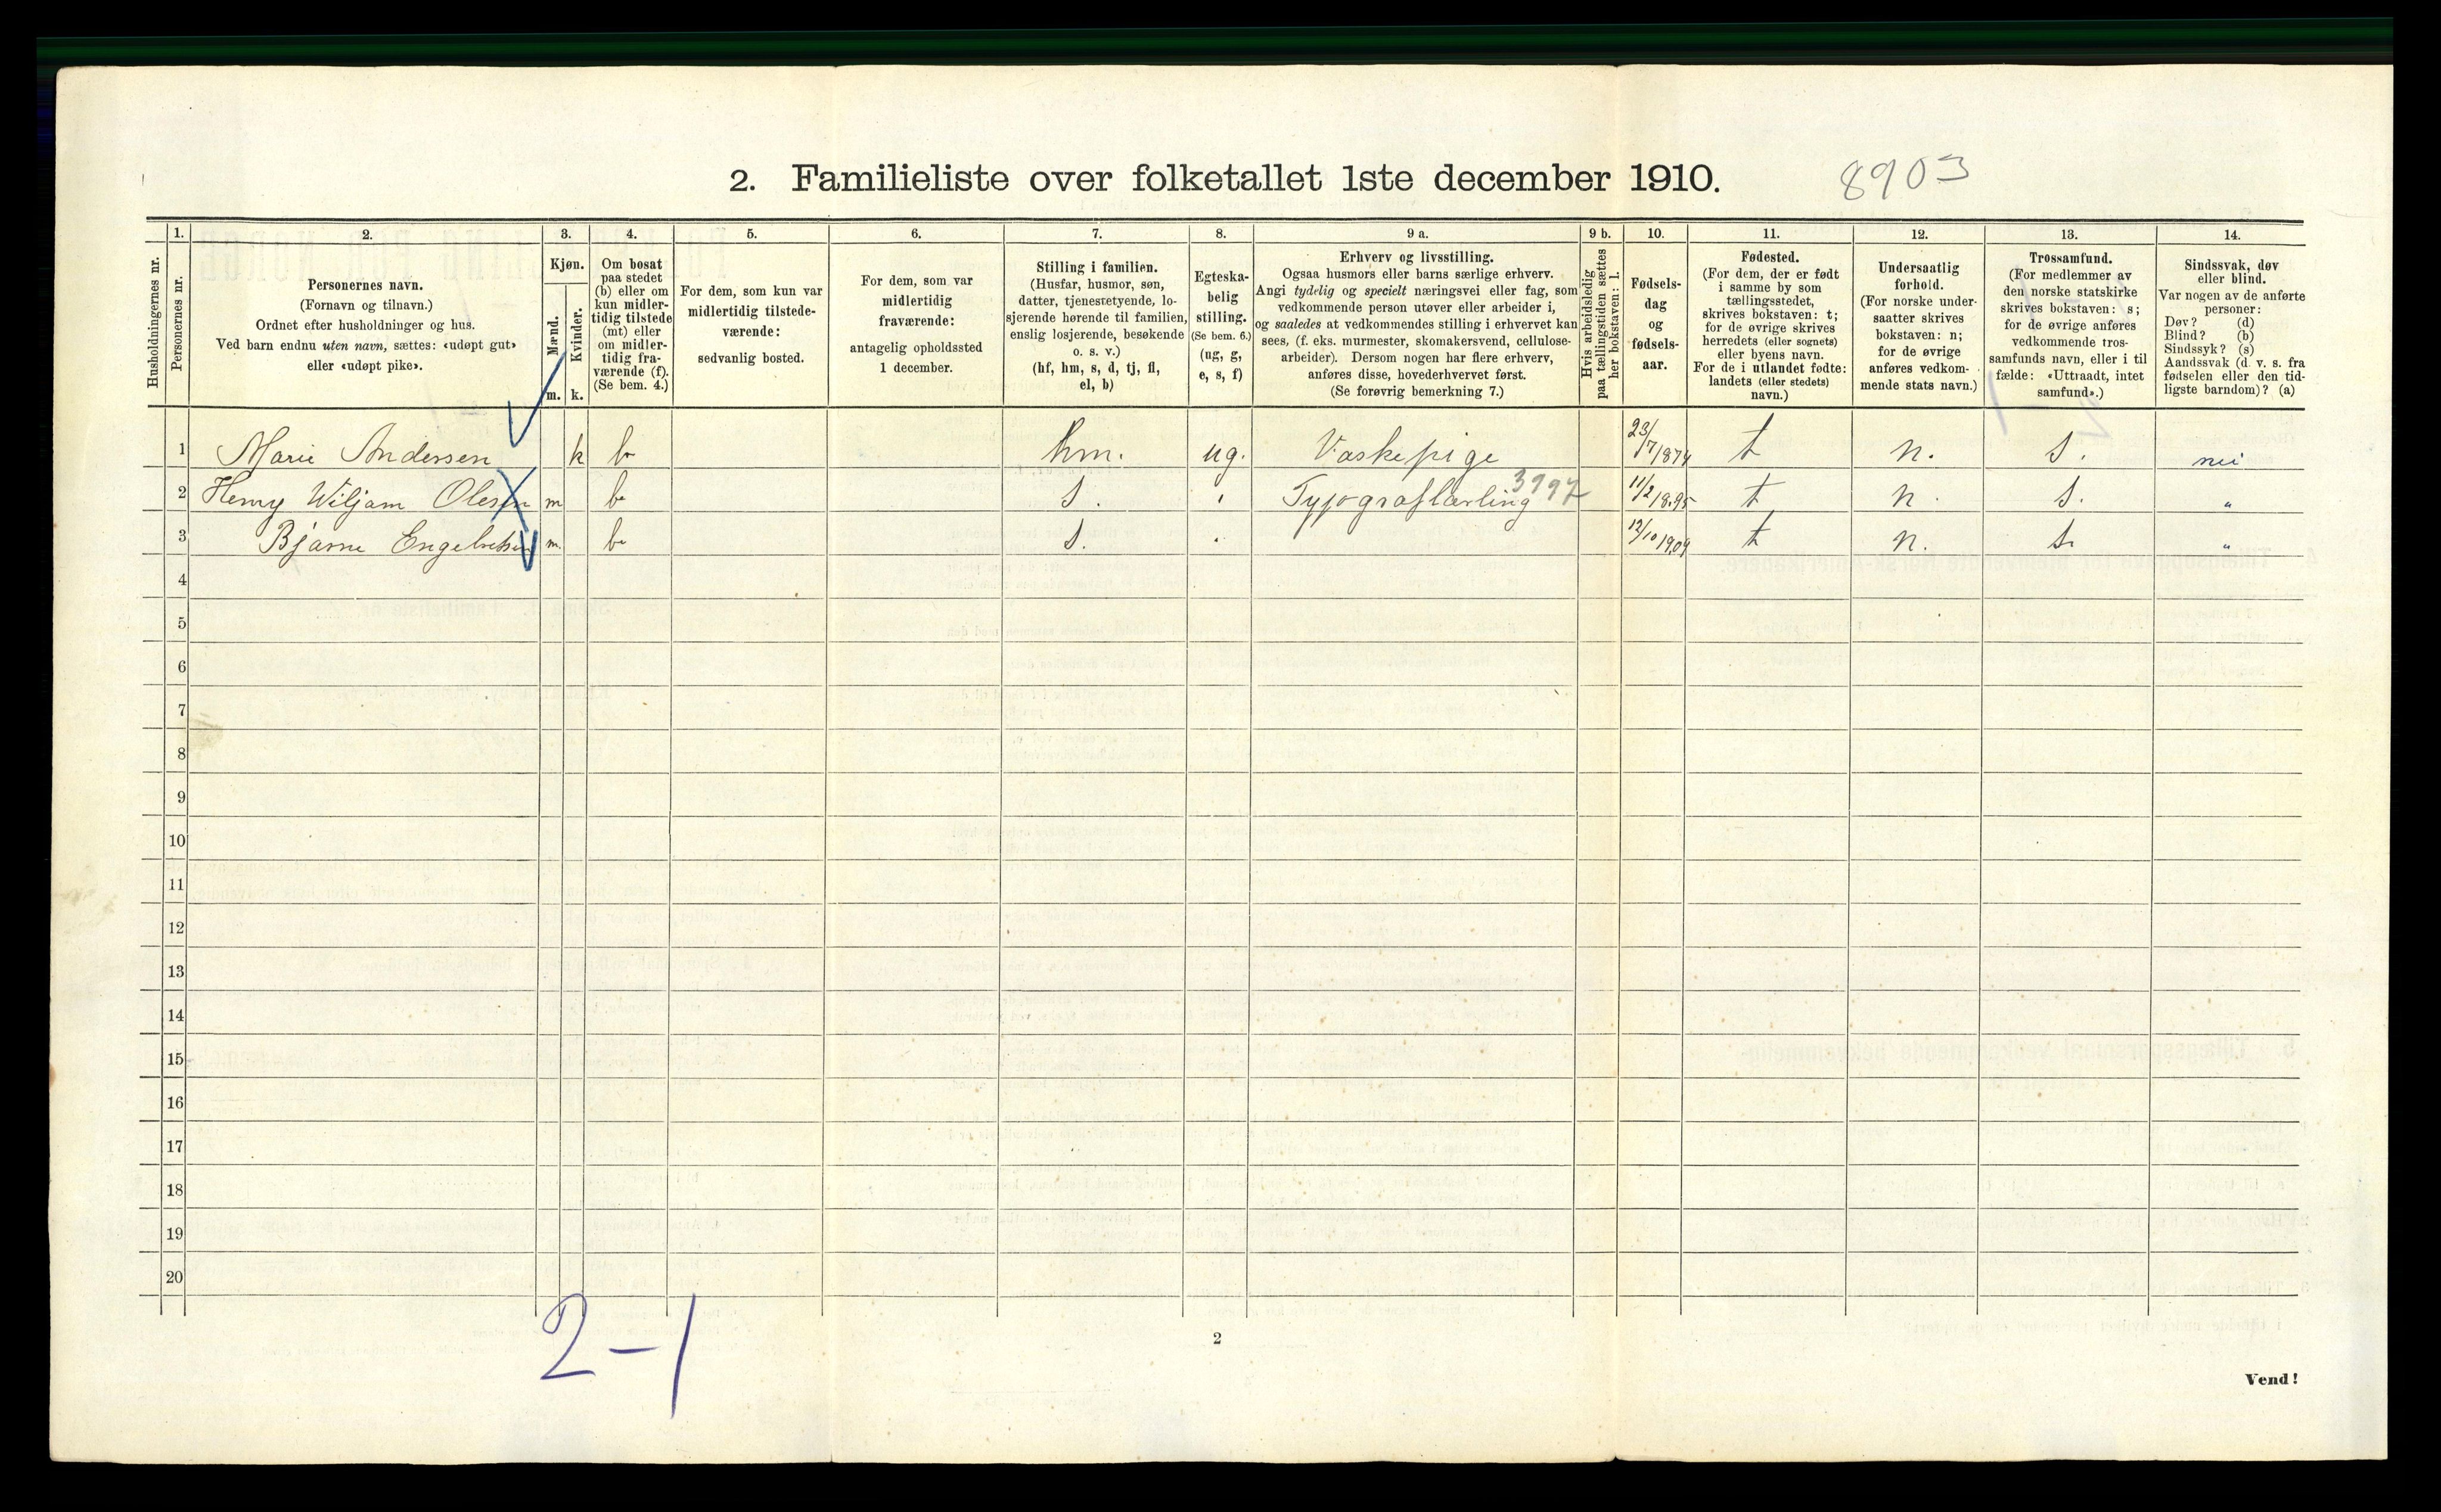 2. Familieliste over folketallet 1ste december 1910. 8903
Husholdningernes nr.
1.
Personernes nr.
2.
Personernes navn.
(Fornavn og tilnavn.)
Ordnet efter husholdninger og hus.
Ved barn endnu uten navn, sættes: «udøpt gut»
eller «udøpt pike».
3.
Kjøn.
Mænd.
m.
Kvinder.
k.
4.
Om bosat
paa stedet
(b) eller om
kun midler-
tidig tilstede
(mt) eller
om midler-
tidig fra-
værende (f).
(Se bem. 4.)
5.
For dem, som kun var
midlertidig tilstede-
værende:
sedvanlig bosted.
6.
For dem, som var
midlertidig
fraværende:
antagelig opholdssted
1 december.
7.
Stilling i familien.
(Husfar, husmor, søn,
datter, tjenestetyende, lo-
sjerende hørende til familien,
enslig losjerende, besøkende
o. s. v.)
(hf, hm, s, d, tj, fl,
el, b)
8.
Egteska-
belig
stilling.
(Se bem. 6.)
(ug, g,
e, s, f)
9 a.
Erhverv og livsstilling.
Ogsaa husmors eller barns særlige erhverv.
Angi tydelig og specielt næringsvei eller fag, som
vedkommende person utøver eller arbeider i,
og saaledes at vedkommendes stilling i erhvervet kan
sees, (f. eks. murmester, skomakersvend, cellulose-
arbeider). Dersom nogen har flere erhverv,
anføres disse, hovederhvervet først.
(Se forøvrig bemerkning 7.)
9 b.
Hvis arbeidsledig
paa tællingstiden sættes
her bokstaven: l.
10.
Fødsels-
dag
og
fødsels-
aar.
11.
Fødested.
(For dem, der er født
i samme by som
tællingsstedet,
skrives bokstaven: t;
for de øvrige skrives
herredets (eller sognets)
eller byens navn.
For de i utlandet fødte:
landets (eller stedets)
navn.)
12.
Undersaatlig
forhold.
(For norske under-
saatter skrives
bokstaven: n;
for de øvrige
anføres vedkom-
mende stats navn.)
13.
Trossamfund.
(For medlemmer av
den norske statskirke
skrives bokstaven: s;
for de øvrige anføres
vedkommende tros-
samfunds navn, eller i til
fælde: «Uttraadt, intet
samfund».)
14.
Sindssvak, døv
eller blind.
Var nogen av de anførte
personer:
Døv? (d)
Blind? (b)
Sindssyk? (s)
Aandssvak (d. v. s. fra
fødselen eller den tid-
ligste barndom)? (a)
1 Marie Andersen k b hm. ug. Vaskepige 23/7 1874 t n. s. nei
2 Henry Wiljam Olesen m b s. " Typograflærling 3997 11/2 1895 t n. s. "
3 Bjarne Engebretsen m. b s. " 12/10 1909 t n. s. "
4
5
6
7
8
9
10
11
12
13
14
15
16
17
18
19
20
2-1
2
Vend!